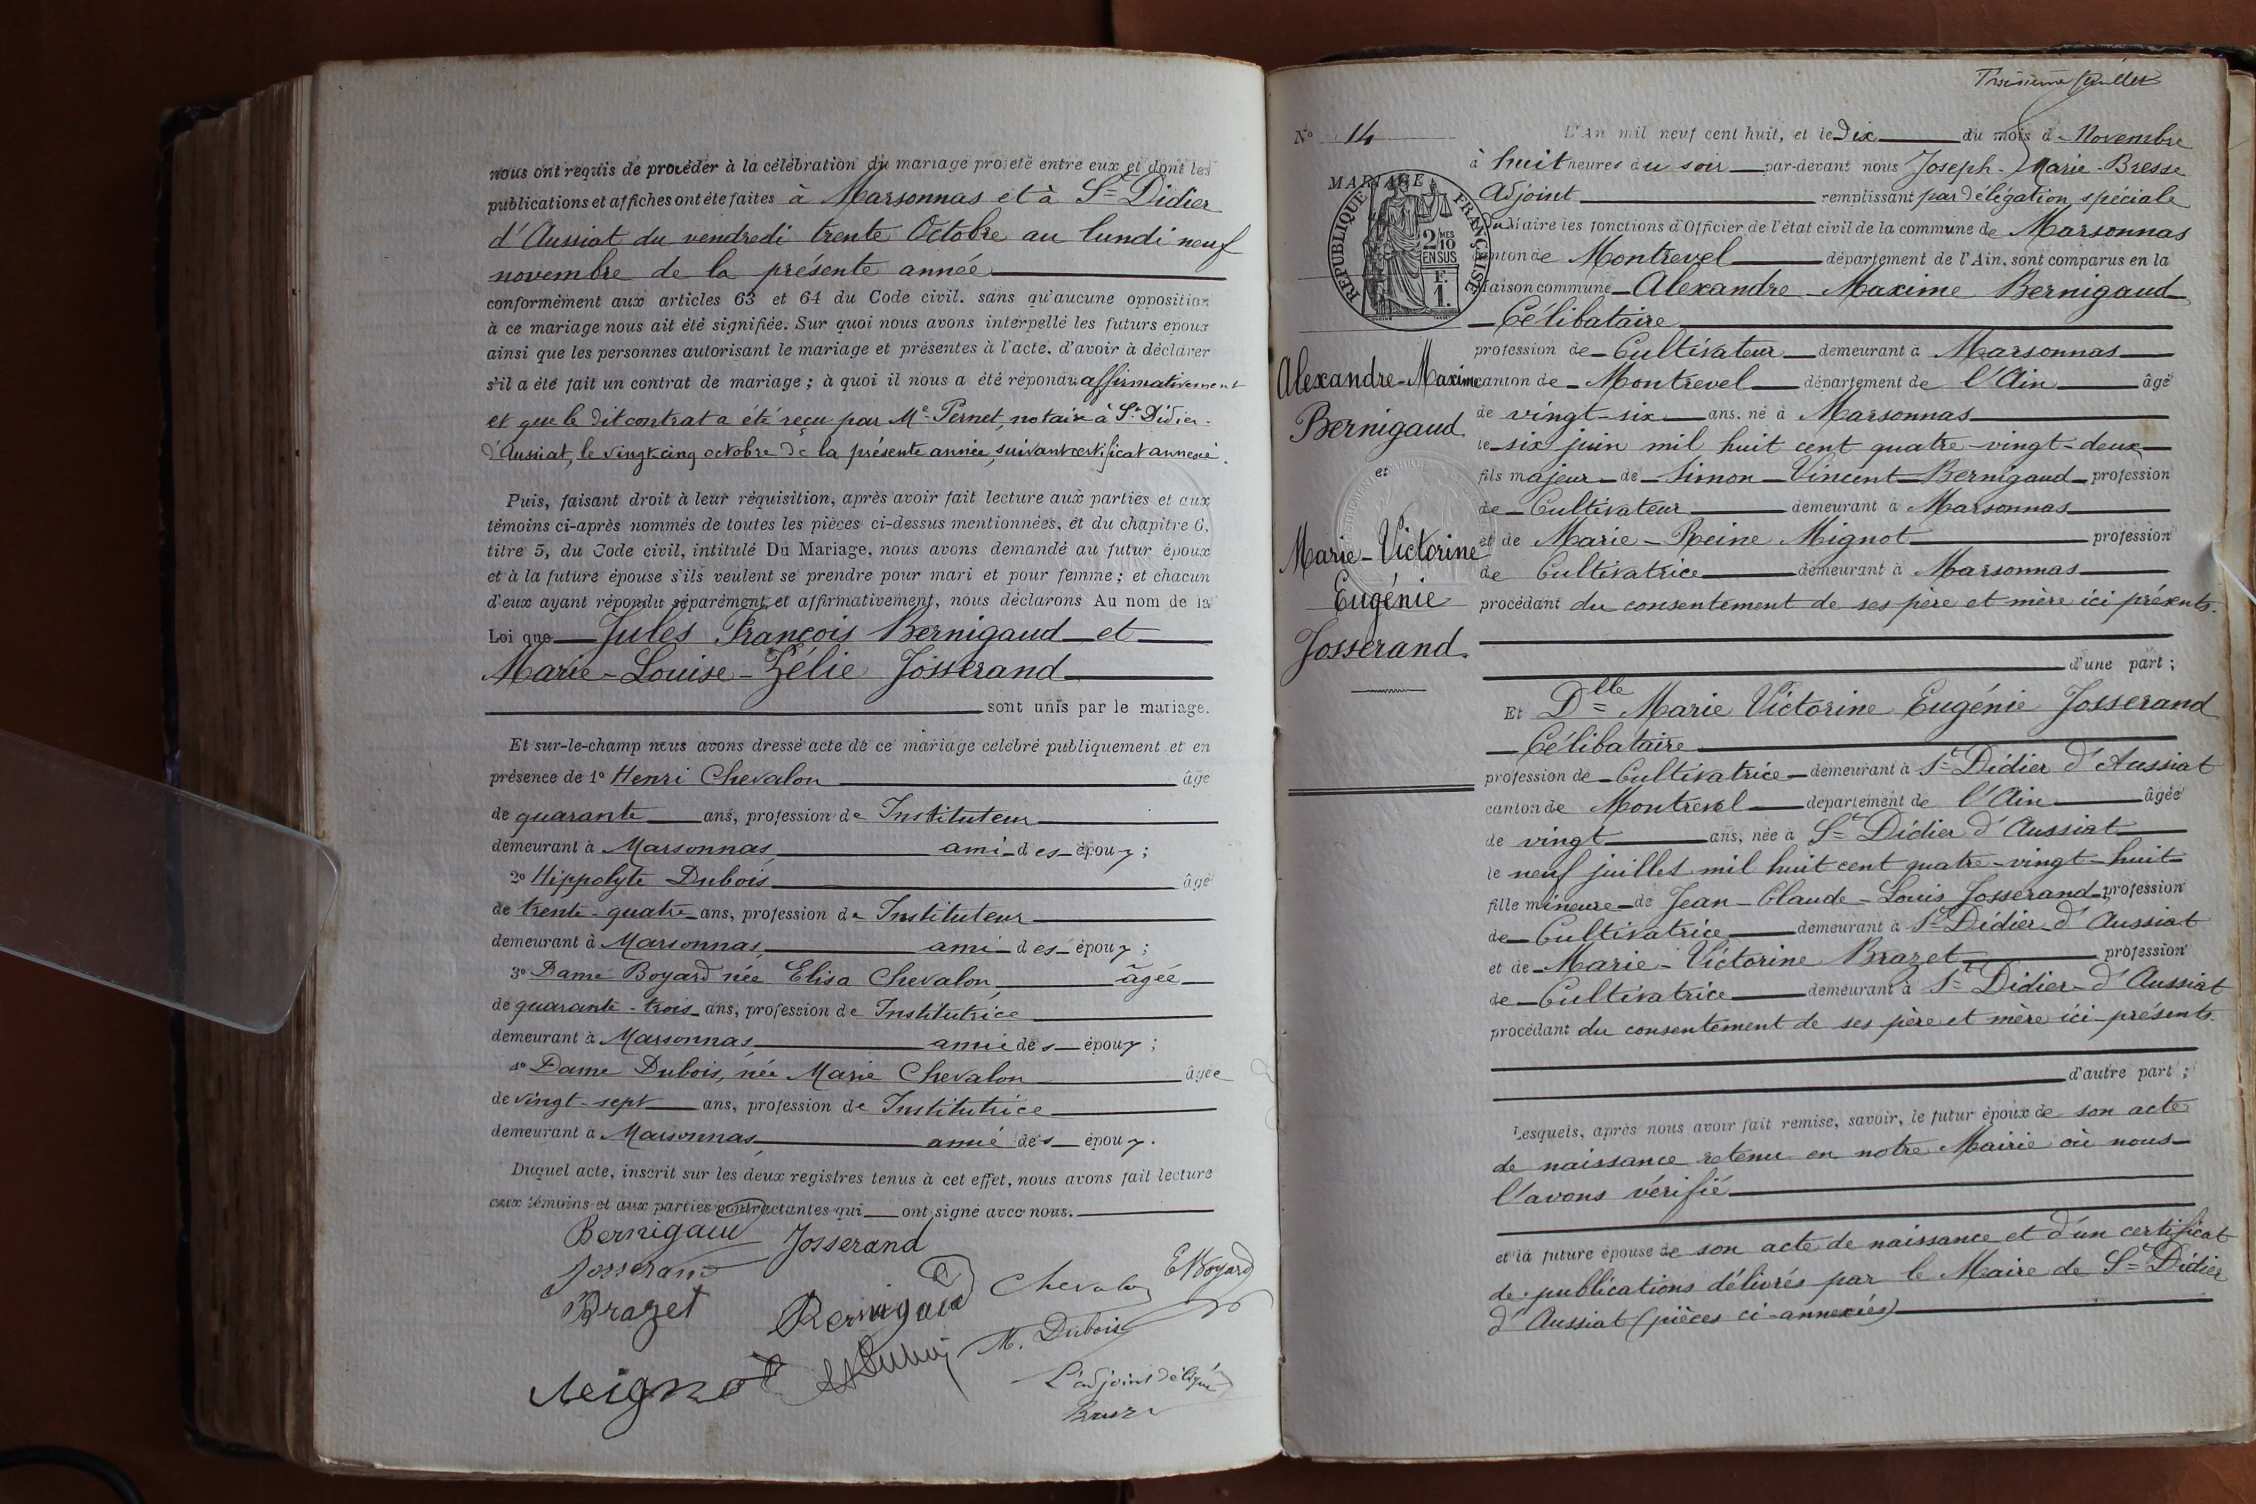 nous ont requis de procéder à la célébration du mariage projeté entre eux et dont les
publications et affiches ont été faites à Marsonnas et à St Didier
d'Aussiat du vendredi trente Octobre au lundi neuf
novembre de la présente année
conformément aux articles 63 et 64 du Code civil, sans qu'aucune opposition
à ce mariage nous ait été signifiée. Sur quoi nous avons interpellé les futurs époux
ainsi que les personnes autorisant le mariage et présentes à l'acte, d'avoir à déclarer
s'il a été fait un contrat de mariage ; à quoi il nous a été répondu affirmativement
et que le dit contrat a été reçu par Me Pernet, notaire à St Didier-
d'Aussiat, le vingt cinq octobre de la présente année, suivant certificat annexé.
Puis, faisant droit à leur réquisition, après avoir fait lecture aux parties et aux
témoins ci-après nommés de toutes les pièces ci-dessus mentionnées, et du chapitre 6,
titre 5, du Code civil, intitulé Du Mariage, nous avons demandé au futur époux
et à la future épouse s'ils veulent se prendre pour mari et pour femme ; et chacun
d'eux ayant répondu séparément et affirmativement, nous déclarons Au nom de la
Loi que Jules François Bernigaud et
Marie-Louise-Zélie Josserand
sont unis par le mariage.
Et sur-le-champ nous avons dressé acte de ce mariage célébré publiquement et en
présence de 1° Henri Chevalon âgé
de quarante ans, profession de Instituteur
demeurant à Marsonnas, ami des époux ;
2° Hippolyte Dubois âgé
de trente-quatre ans, profession de Instituteur
demeurant à Marsonnas, ami des époux ;
3° Dame Boyard née Elisa Chevalon, âgée
de quarante-trois ans, profession de Institutrice
demeurant à Marsonnas, amie des époux ;
4° Dame Dubois, née Marie Chevalon âgée
de vingt-sept ans, profession de Institutrice
demeurant à Marsonnas, amie des époux.
Duquel acte, inscrit sur les deux registres tenus à cet effet, nous avons fait lecture
aux témoins et aux parties contractantes qui ont signé avec nous.
Bernigaud Josserand
Josserand
Brazet Bernigaud Chevalon E Boyard
Mignot H Dubois M. Dubois
L'adjoint délégué
Bresse
Troisième feuillet
N° 14
MARIAGE
RÉPUBLIQUE FRANÇAISE
2 MES
10
EN SUS
1 F.
Alexandre-Maxime
Bernigaud
et
Marie-Victorine
Eugénie
Josserand.
L'An mil neuf cent huit, et le Dix du mois d Novembre
à huit heures du soir par-devant nous Joseph-Marie-Bresse
Adjoint remplissant par délégation spéciale
du Maire les fonctions d'Officier de l'état civil de la commune de Marsonnas
canton de Montrevel département de l'Ain, sont comparus en la
maison commune Alexandre Maxime Bernigaud
Célibataire
profession de Cultivateur demeurant à Marsonnas
canton de Montrevel département de l'Ain âgé
de vingt-six ans, né à Marsonnas
le six juin mil huit cent quatre-vingt-deux
fils majeur de Simon Vincent Bernigaud profession
de Cultivateur demeurant à Marsonnas
et de Marie-Reine Mignot profession
de Cultivatrice demeurant à Marsonnas
procédant du consentement de ses père et mère ici présents.
d'une part ;
Et Dlle Marie Victorine Eugénie Josserand
Célibataire
profession de Cultivatrice demeurant à St Didier d'Aussiat
canton de Montrevel département de l'Ain âgée
de vingt ans, née à St Didier d'Aussiat
le neuf juillet mil huit cent quatre-vingt-huit
fille mineure de Jean-Claude-Louis Josserand profession
de Cultivatrice demeurant à St Didier d'Aussiat
et de Marie-Victorine Brazet profession
de Cultivatrice demeurant à St Didier d'Aussiat
procédant du consentement de ses père et mère ici présents.
d'autre part ;
Lesquels, après nous avoir fait remise, savoir, le futur époux de son acte
de naissance retenu en notre Mairie où nous
l'avons vérifié
et la future épouse de son acte de naissance et d'un certificat
de publications délivrés par le Maire de St Didier
d'Aussiat (pièces ci-annexées)